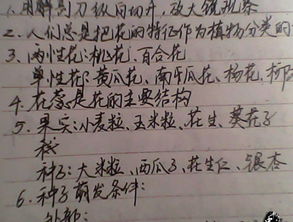 1.用解剖刀纵向切开,放大镜观察
2.人们总是把花的特征作为植物分类的
3、两性花:桃花、百合花
单性花:黄瓜花、南瓜花、杨花、柳
4.花蕊是花的主要结构
5.果实:小麦粒、玉米粒、花生、葵花子
种子:大米粒、西瓜子、花生仁、银杏
6.种子萌发条件:
外部: